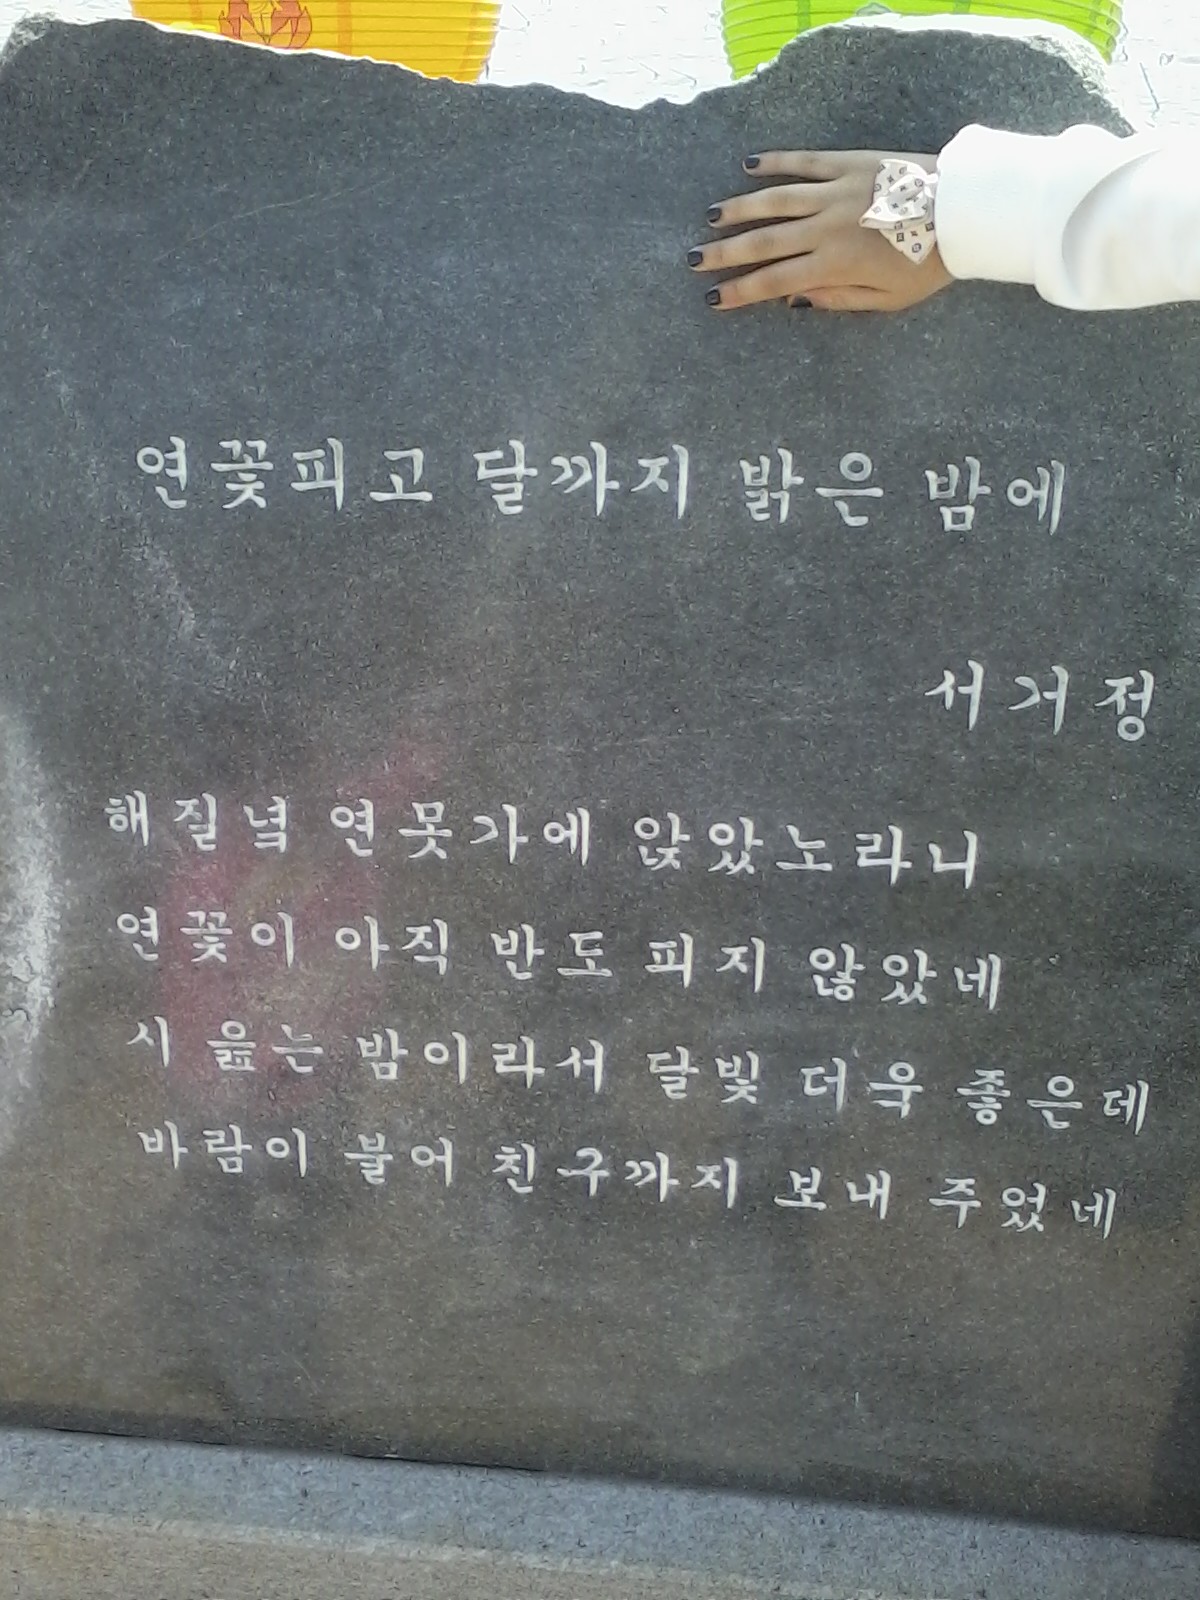 연꽃피고 달까지 밝은 밤에
서거정
해질녘 연못가에 앉았노라니
연꽃이 아직 반도 피지 않았네
시 읊는 밤이라서 달빛 더욱 좋은데
바람이 불어 친구까지 보내 주었네